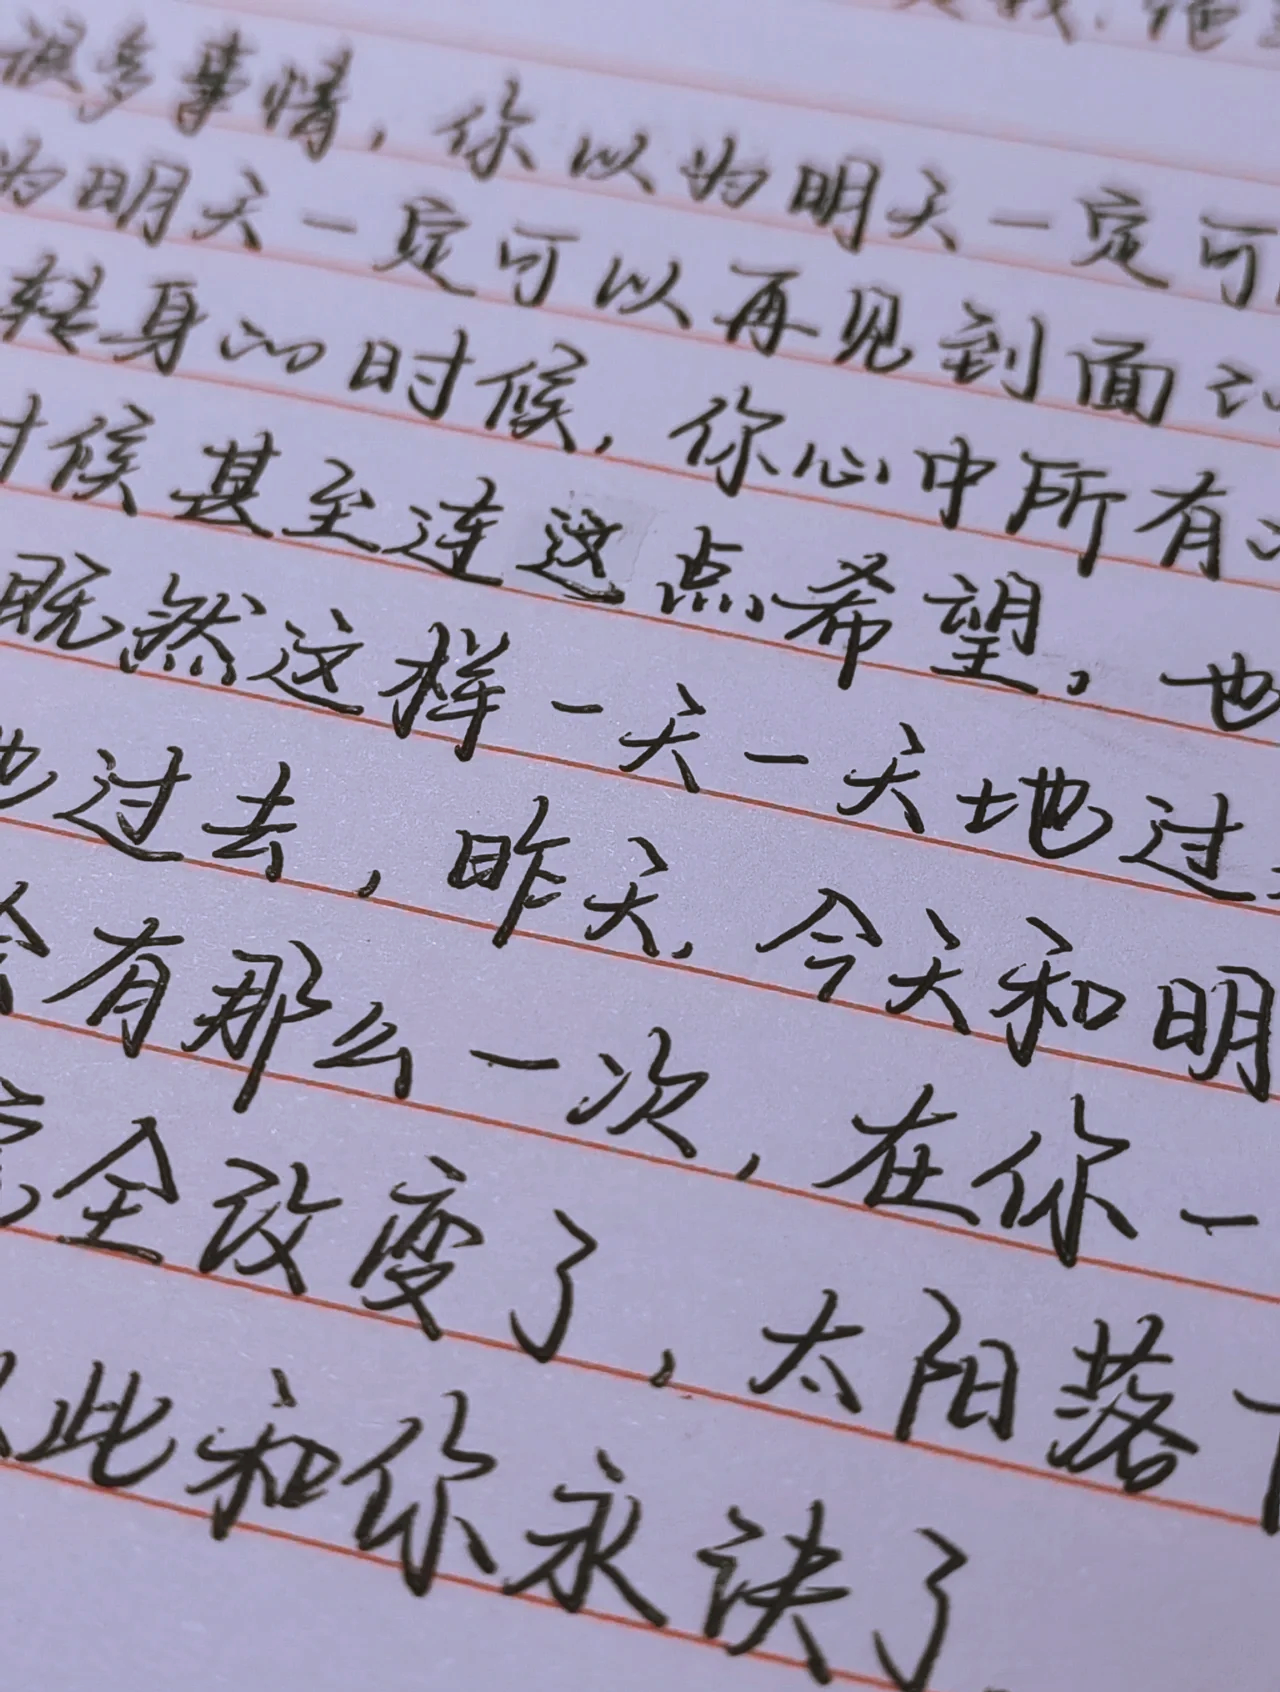 很多事情，你以为明天一定可
为明天一定可以再见到面
转身的时候，你心中所有
时候甚至连这点希望，也
既然这样一天一天地过
地过去，昨天，今天和明
会有那么一次，在你一
完全改变了，太阳落下
从此和你永诀了